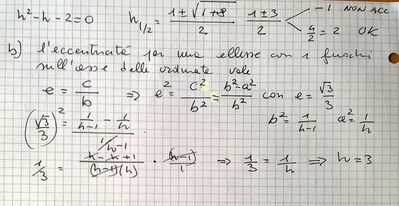 h² - h - 2 = 0   h₁/₂ = (1 ± √(1+8))/2   (1 ± 3)/2   -1 NON ACC
4/2 = 2 OK
b) l'eccentricità per una ellisse con i fuochi
sull'asse delle ordinate vale
e = c/b ⇒ e² = c²/b² = (b² - a²)/b² con e = √3/3
(√3/3)² = (1/(h-1) - 1/h)/(1/(h-1))   b² = 1/(h-1)   a² = 1/h
1/3 = (h - h + 1)/((h-1)(h)) · (h-1)/1 ⇒ 1/3 = 1/h ⇒ h = 3